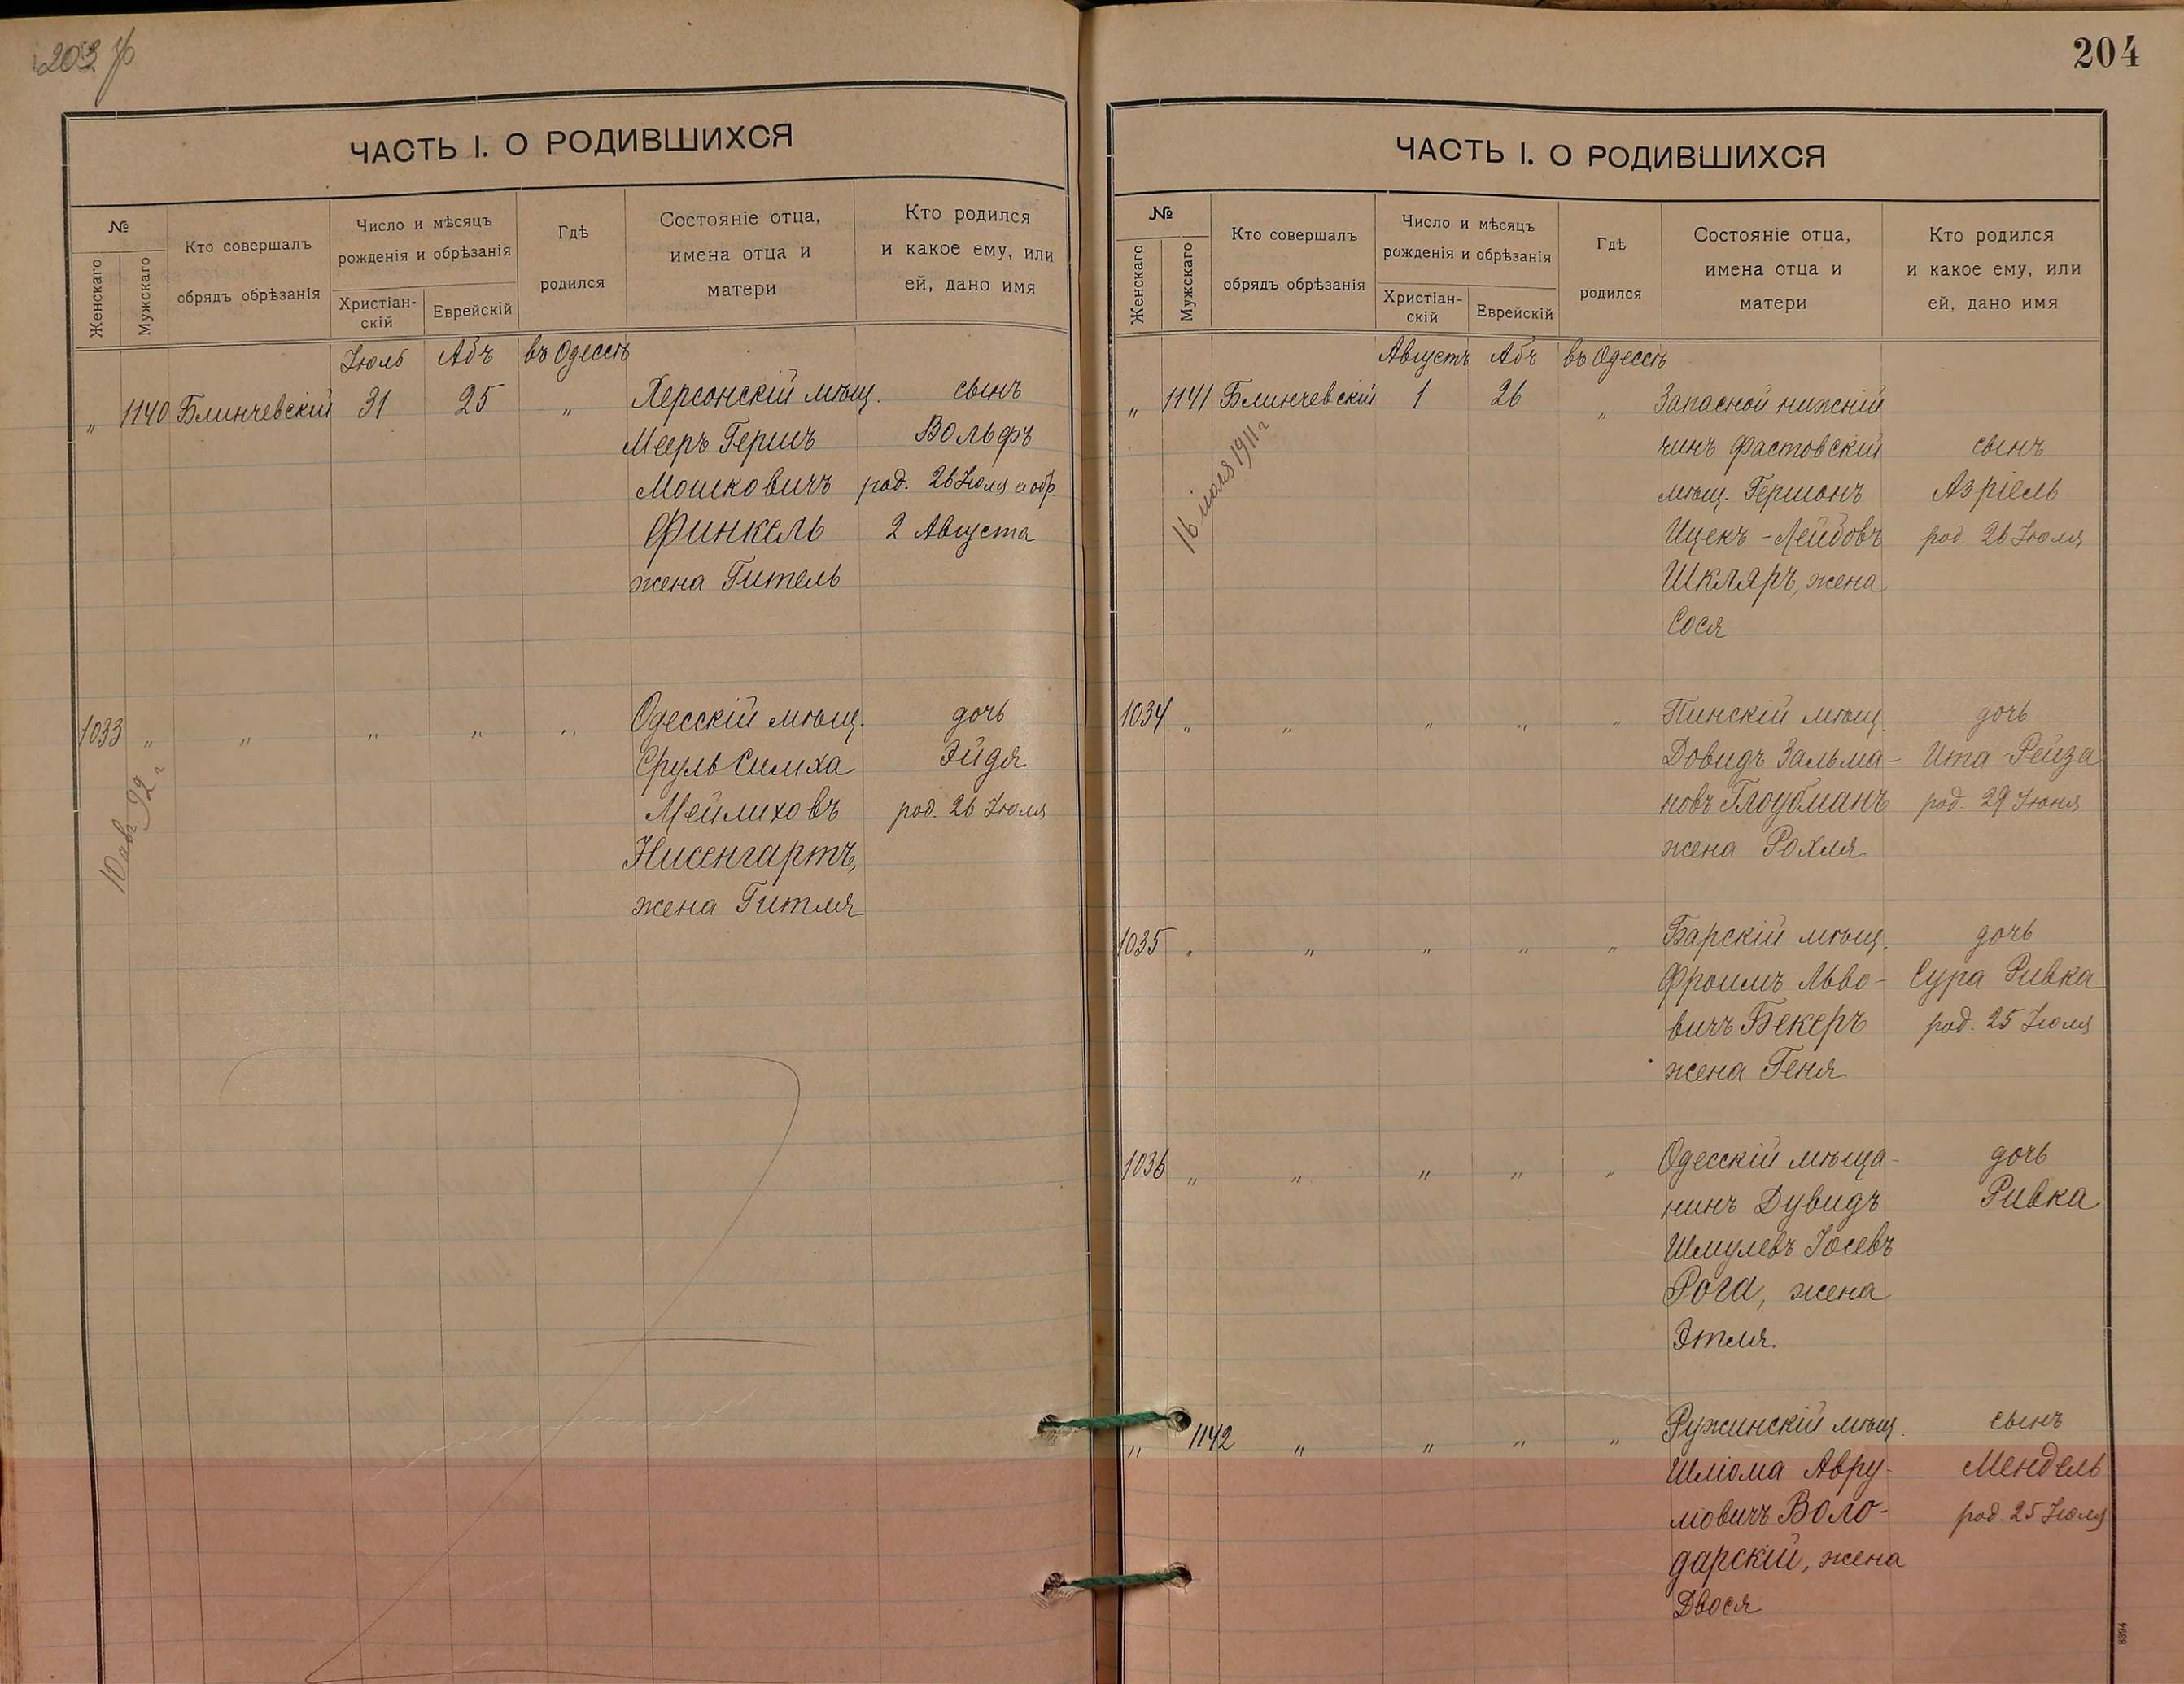 203 об
ЧАСТЬ I. О РОДИВШИХСЯ
№
Женскаго
Мужскаго
Кто совершалъ
обрядъ обрѣзанія
Число и мѣсяцъ
рожденія и обрѣзанія
Христіан-
скій
Еврейскій
Гдѣ
родился
Состояніе отца,
имена отца и
матери
Кто родился
и какое ему, или
ей, дано имя
Іюль Абъ въ Одессѣ
„ 1140 Блинчевскій 31 25 „ Херсонскій мѣщ. сынъ
Мееръ Гершъ Вольфъ
Мошковичъ род. 26 Іюля а обр.
Финкель 2 Августа
жена Гитель
1033 „ „ „ „ „ Одесскій мѣщ. дочь
Сруль Симха Эйдя
Мейлиховъ род. 26 Іюля
Нисенгартъ,
жена Гитля
10 авг. 92 г
204
ЧАСТЬ I. О РОДИВШИХСЯ
№
Женскаго
Мужскаго
Кто совершалъ
обрядъ обрѣзанія
Число и мѣсяцъ
рожденія и обрѣзанія
Христіан-
скій
Еврейскій
Гдѣ
родился
Состояніе отца,
имена отца и
матери
Кто родился
и какое ему, или
ей, дано имя
Августъ Абъ въ Одессѣ
„ 1141 Блинчевскій 1 26 „ Запасной нижній
чинъ Фастовскій сынъ
мѣщ. Гершонъ Азріель
Ицекъ-Лейбовъ род. 26 Іюля
Шкляръ, жена
Сося
16 іюля 1911 г
1034 „ „ „ „ „ Пинскій мѣщ. дочь
Довидъ Зальма- Ита-Рейза
новъ Глоубманъ род. 29 Іюня
жена Рохля
1035 „ „ „ „ „ Барскій мѣщ. дочь
Фроимъ Льво- Сура Ривка
вичъ Бекеръ род. 25 Іюля
жена Геня
1036 „ „ „ „ „ Одесскій мѣща- дочь
нинъ Дувидъ Ривка
Шмулевъ Іосевъ
Рога, жена
Этля
„ 1142 „ „ „ „ Ружинскій мѣщ. сынъ
Шліома Авру- Мендель
мовичъ Воло- род. 25 Іюля
дарскій, жена
Двося
8394